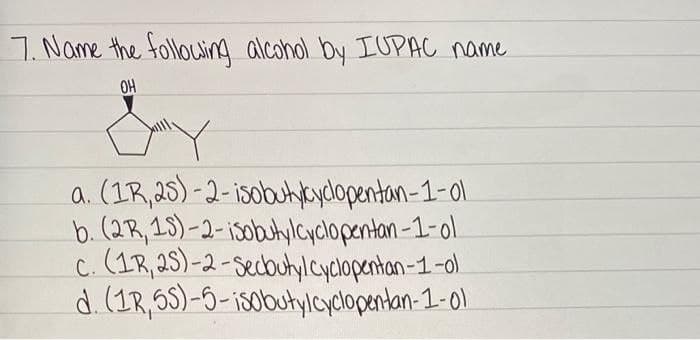 7. Name the following alcohol by IUPAC name
OH
a. (1R,2S)-2-isobutylcyclopentan-1-ol
b. (2R,1S)-2-isobutylcyclopentan-1-ol
c. (1R,2S)-2-Secbutylcyclopentan-1-ol
d. (1R,5S)-5-isobutylcyclopentan-1-ol